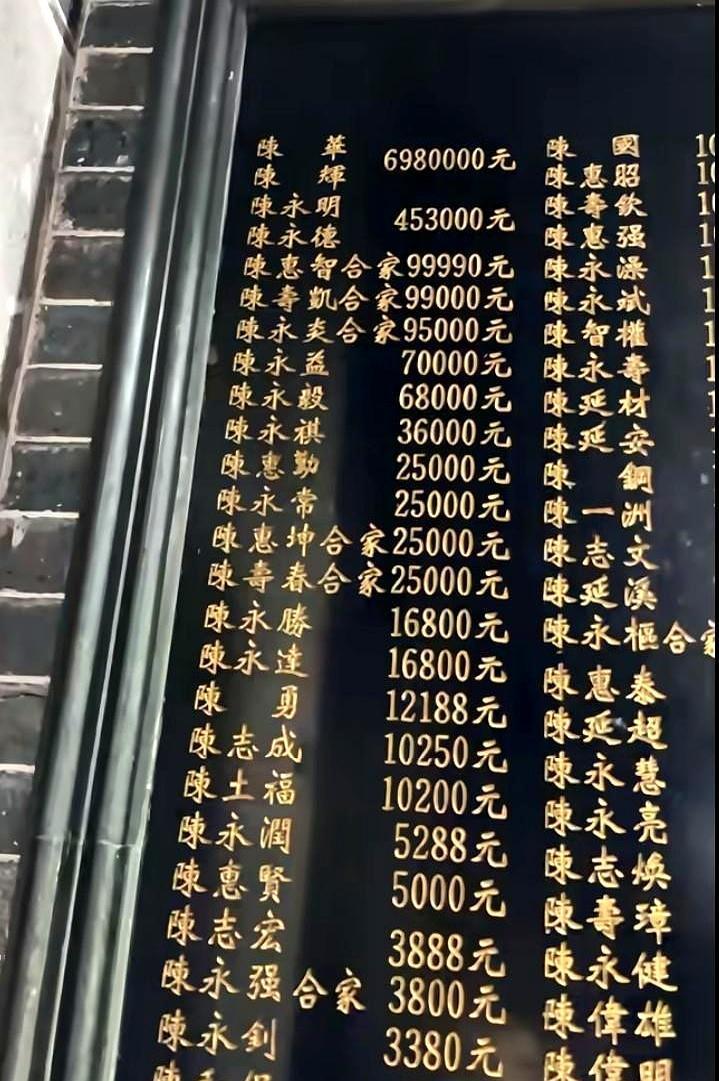 陳 華
陳 輝
6980000元
陳永明
陳永德
453000元
陳惠智合家99990元
陳壽凱合家99000元
陳永炎合家95000元
陳永益 70000元
陳永毅 68000元
陳永祺 36000元
陳惠勤 25000元
陳永常 25000元
陳惠坤合家25000元
陳壽春合家25000元
陳永勝 16800元
陳永達 16800元
陳 勇 12188元
陳志成 10250元
陳土福 10200元
陳永潤 5288元
陳惠賢 5000元
陳志宏 3888元
陳永强合家 3800元
陳永釗 3380元
陳 國
陳惠昭
陳壽欽
陳惠强
陳永深
陳永斌
陳智權
陳永壽
陳延材
陳延安
陳 鋼
陳一洲
陳志文
陳延溪
陳永樞合家
陳惠泰
陳延超
陳永慧
陳永亮
陳志煥
陳壽璋
陳永健
陳偉雄
陳偉明